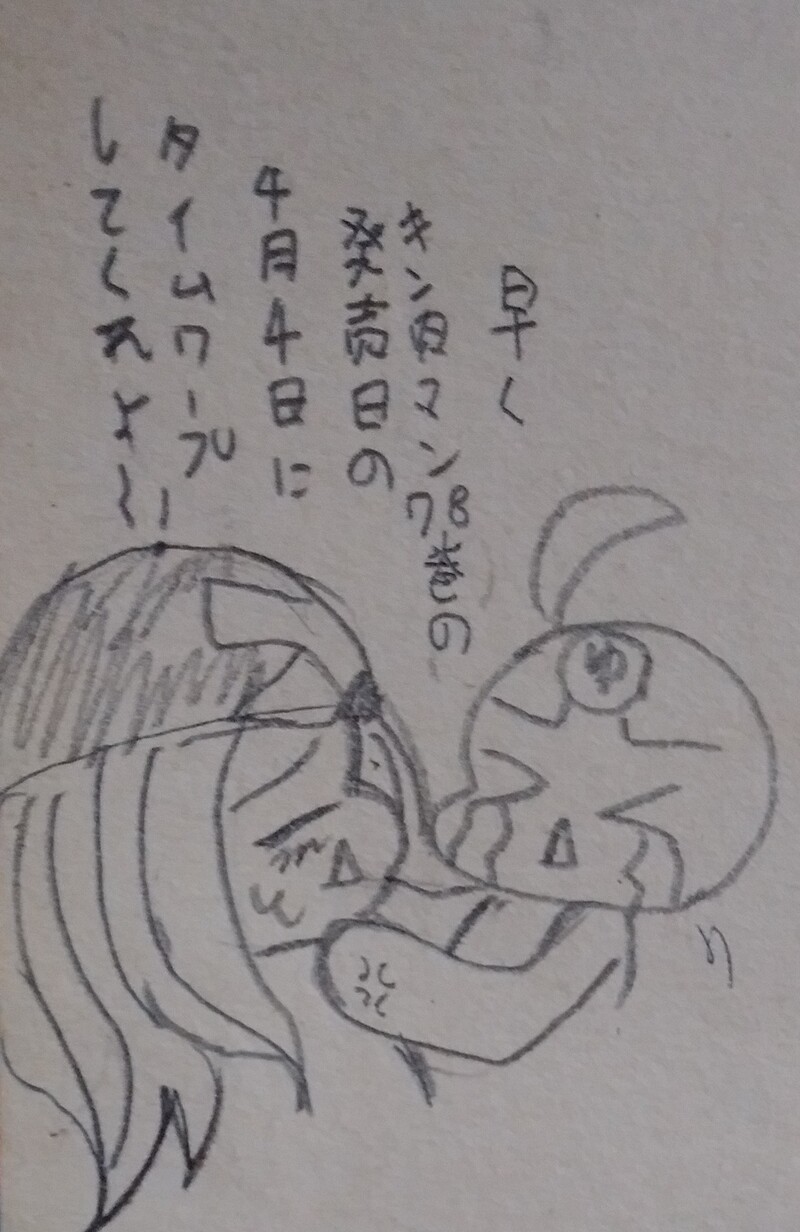 早く
キン肉マン78巻の
発売日の
4月4日に
タイムワープ
してくれよ〜!